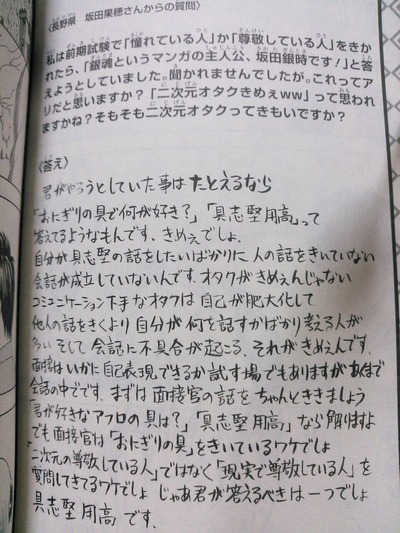 〈長野県　坂田果穂さんからの質問〉
私は前期試験で「憧れている人」か「尊敬している人」をきか
れたら、「銀魂というマンガの主人公、坂田銀時です！」と答
えようとしていました。聞かれませんでしたが。これってア
リだと思いますか？「二次元オタクきめぇｗｗ」って思われ
ますかね？そもそも二次元オタクってきもいですか？
〈答え〉
君がやろうとしていた事はたとえるなら
「おにぎりの具で何が好き？」「具志堅用高」って
答えてるようなもんです、きめぇでしょ。
自分が具志堅の話をしたいばかりに人の話をきいていない
会話が成立していないんです。オタクがきめぇんじゃない
コミュニケーション下手なオタクは自己が肥大化して
他人の話をきくより自分が何を話すかばかり考える人が
多い そして会話に不具合が起こる。それがきめぇんです。
面接はいかに自己表現できるか試す場でもありますがあくまで
会話の中でです。まずは面接官の話をちゃんとききましょう
「君が好きなアフロの具は？」「具志堅用高」なら解りますよ
でも面接官は「おにぎりの具」をきいているワケでしょ
「二次元の尊敬している人」ではなく「現実で尊敬している人」を
質問してきてるワケでしょ じゃあ君が答えるべきは一つでしょ
具志堅用高です。